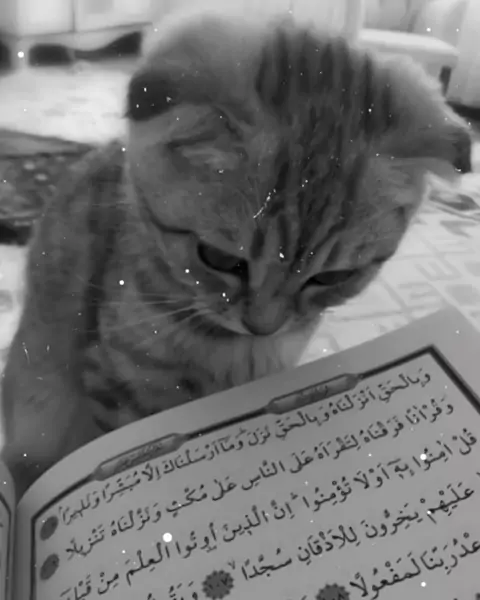 وَبِالْحَقِّ اَنْزَلْنَاهُ وَبِالْحَقِّ نَزَلَ وَمَٓا اَرْسَلْنَاكَ اِلَّا مُبَشِّرًا وَنَذِيرًا
وَقُرْاٰنًا فَرَقْنَاهُ لِتَقْرَاَهُ عَلَى النَّاسِ عَلٰى مُكْثٍ وَنَزَّلْنَاهُ تَنْزِيلًا
قُلْ اٰمِنُوا بِهٖٓ اَوْ لَا تُؤْمِنُوا اِنَّ الَّذِينَ اُوتُوا الْعِلْمَ مِنْ
عَلَيْهِمْ يَخِرُّونَ لِلْاَذْقَانِ سُجَّدًا
رَبِّنَا لَمَفْعُولًا